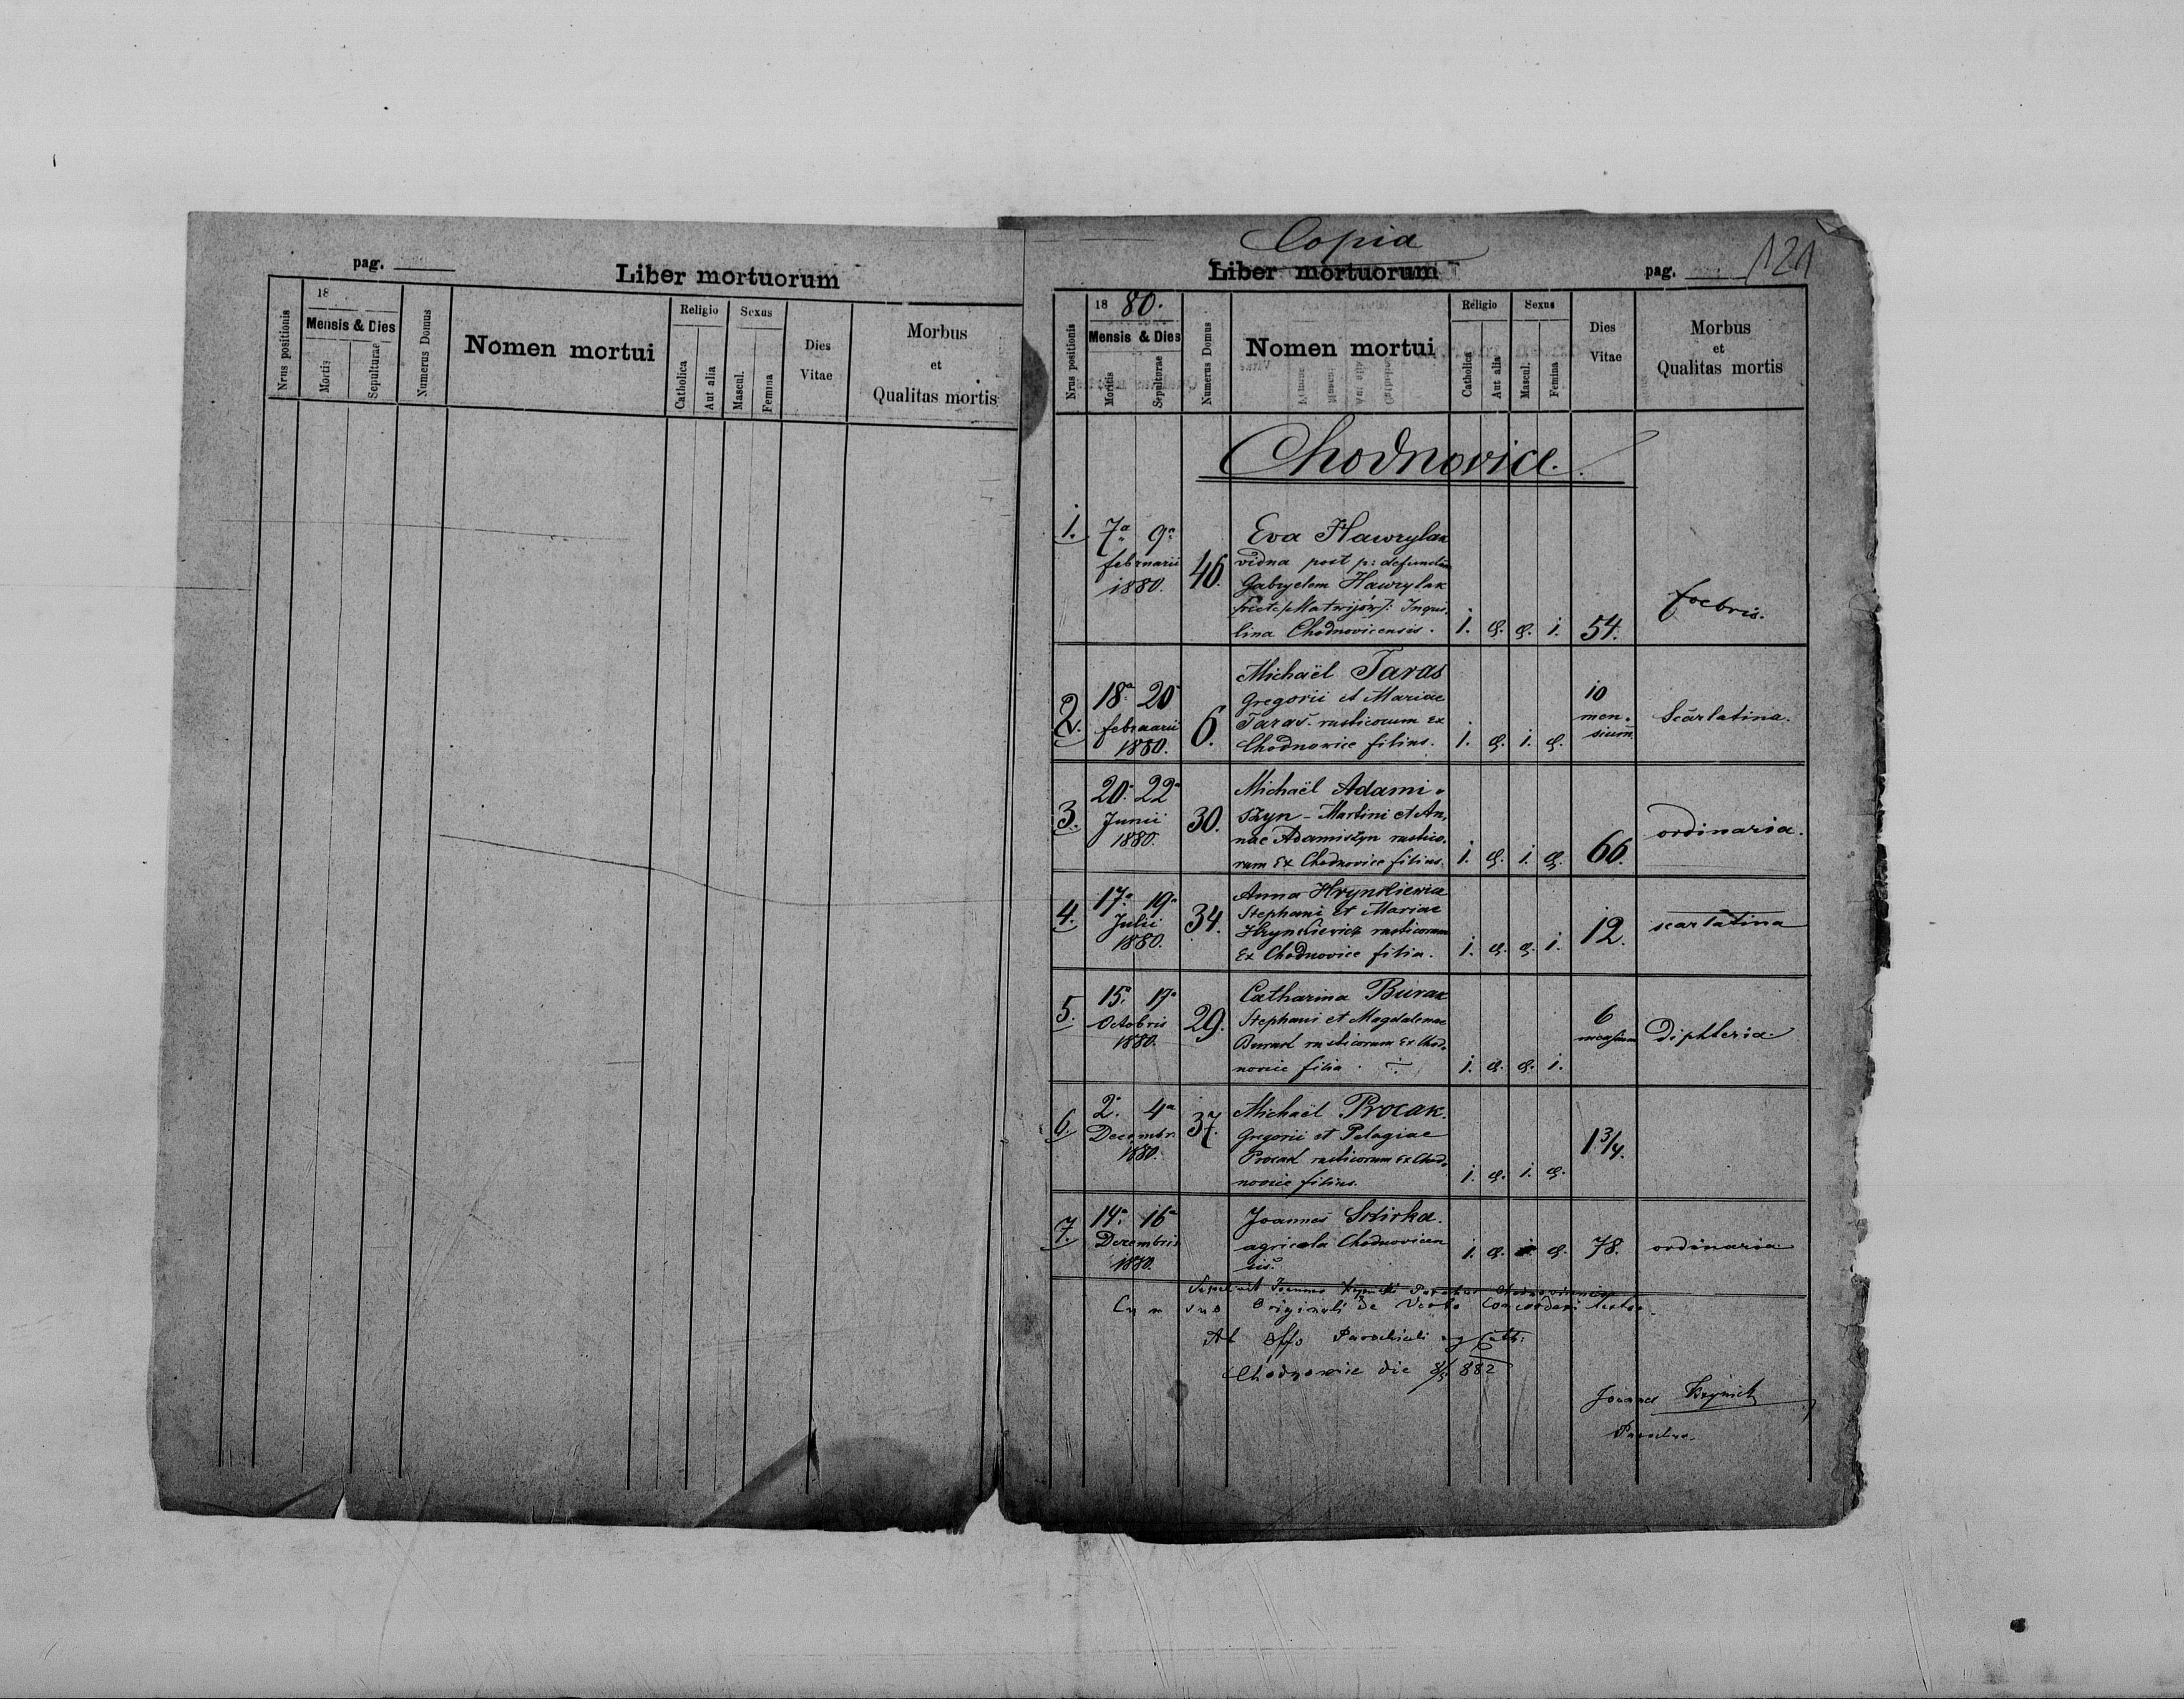 pag.
Liber mortuorum
Nrus positionis
18
Mensis & Dies
Mortis
Sepulturae
Numerus Domus
Nomen mortui
Religio
Catholica
Aut alia
Sexus
Mascul.
Femina
Dies
Vitae
Morbus
et
Qualitas mortis
Copia
Liber mortuorum
pag. 121
Nrus positionis
18 80.
Mensis & Dies
Mortis
Sepulturae
Numerus Domus
Nomen mortui
Religio
Catholica
Aut alia
Sexus
Mascul.
Femina
Dies
Vitae
Morbus
et
Qualitas mortis
Chodnovice.
1. 7a 9a
februarii
1880.
46.
Eva Hawrylak
vidna post p: defunctum
Gabryelem Hawrylak
Matwijów Inqui,
lina Chodnovicensis.
1. 1. 54. foebris.
2. 18a 20
februarii
1880.
6.
Michaël Taras
Gregorii et Mariae
Taras rusticorum Ex
Chodnowice filius.
1. 1.
10
men,
sium.
Scarlatina.
3. 20. 22a
Junii
1880.
30.
Michaël Adami,
szyn - Martini et An,
nae Adamiszyn rustico,
rum Ex Chodnovice filius.
1. 1. 66. ordinaria.
4. 17a 19a
Julii
1880.
34.
Anna Hrynkiewicz
Stephani et Mariae
Hrynkiewicz rusticorum
Ex Chodnovice filia.
1. 1. 12. scarlatina
5. 15a 17a
Octobris
1880.
29.
Catharina Burak
Stephani et Magdalenae
Burak rusticorum Ex Chod,
novice filia.
1. 1.
6
mensium
Diphteria.
6. 2a 4a
Decembr.
1880.
37.
Michaël Procak.
Gregorii et Pelagiae
Procak rusticorum Ex Chod,
novice filius.
1. 1. 1 3/4.
7. 14a 16a
Decembris
1880.
Joannes
agricola Chodnovicen
sis.
1. 78. ordinaria
Sepelivit Joannes Parochus
Cum suo Originali de Verbo Concordari testor.
Ab Offo Parochiali Cath:
Chodnowice die 882
Joannes
Parochus.